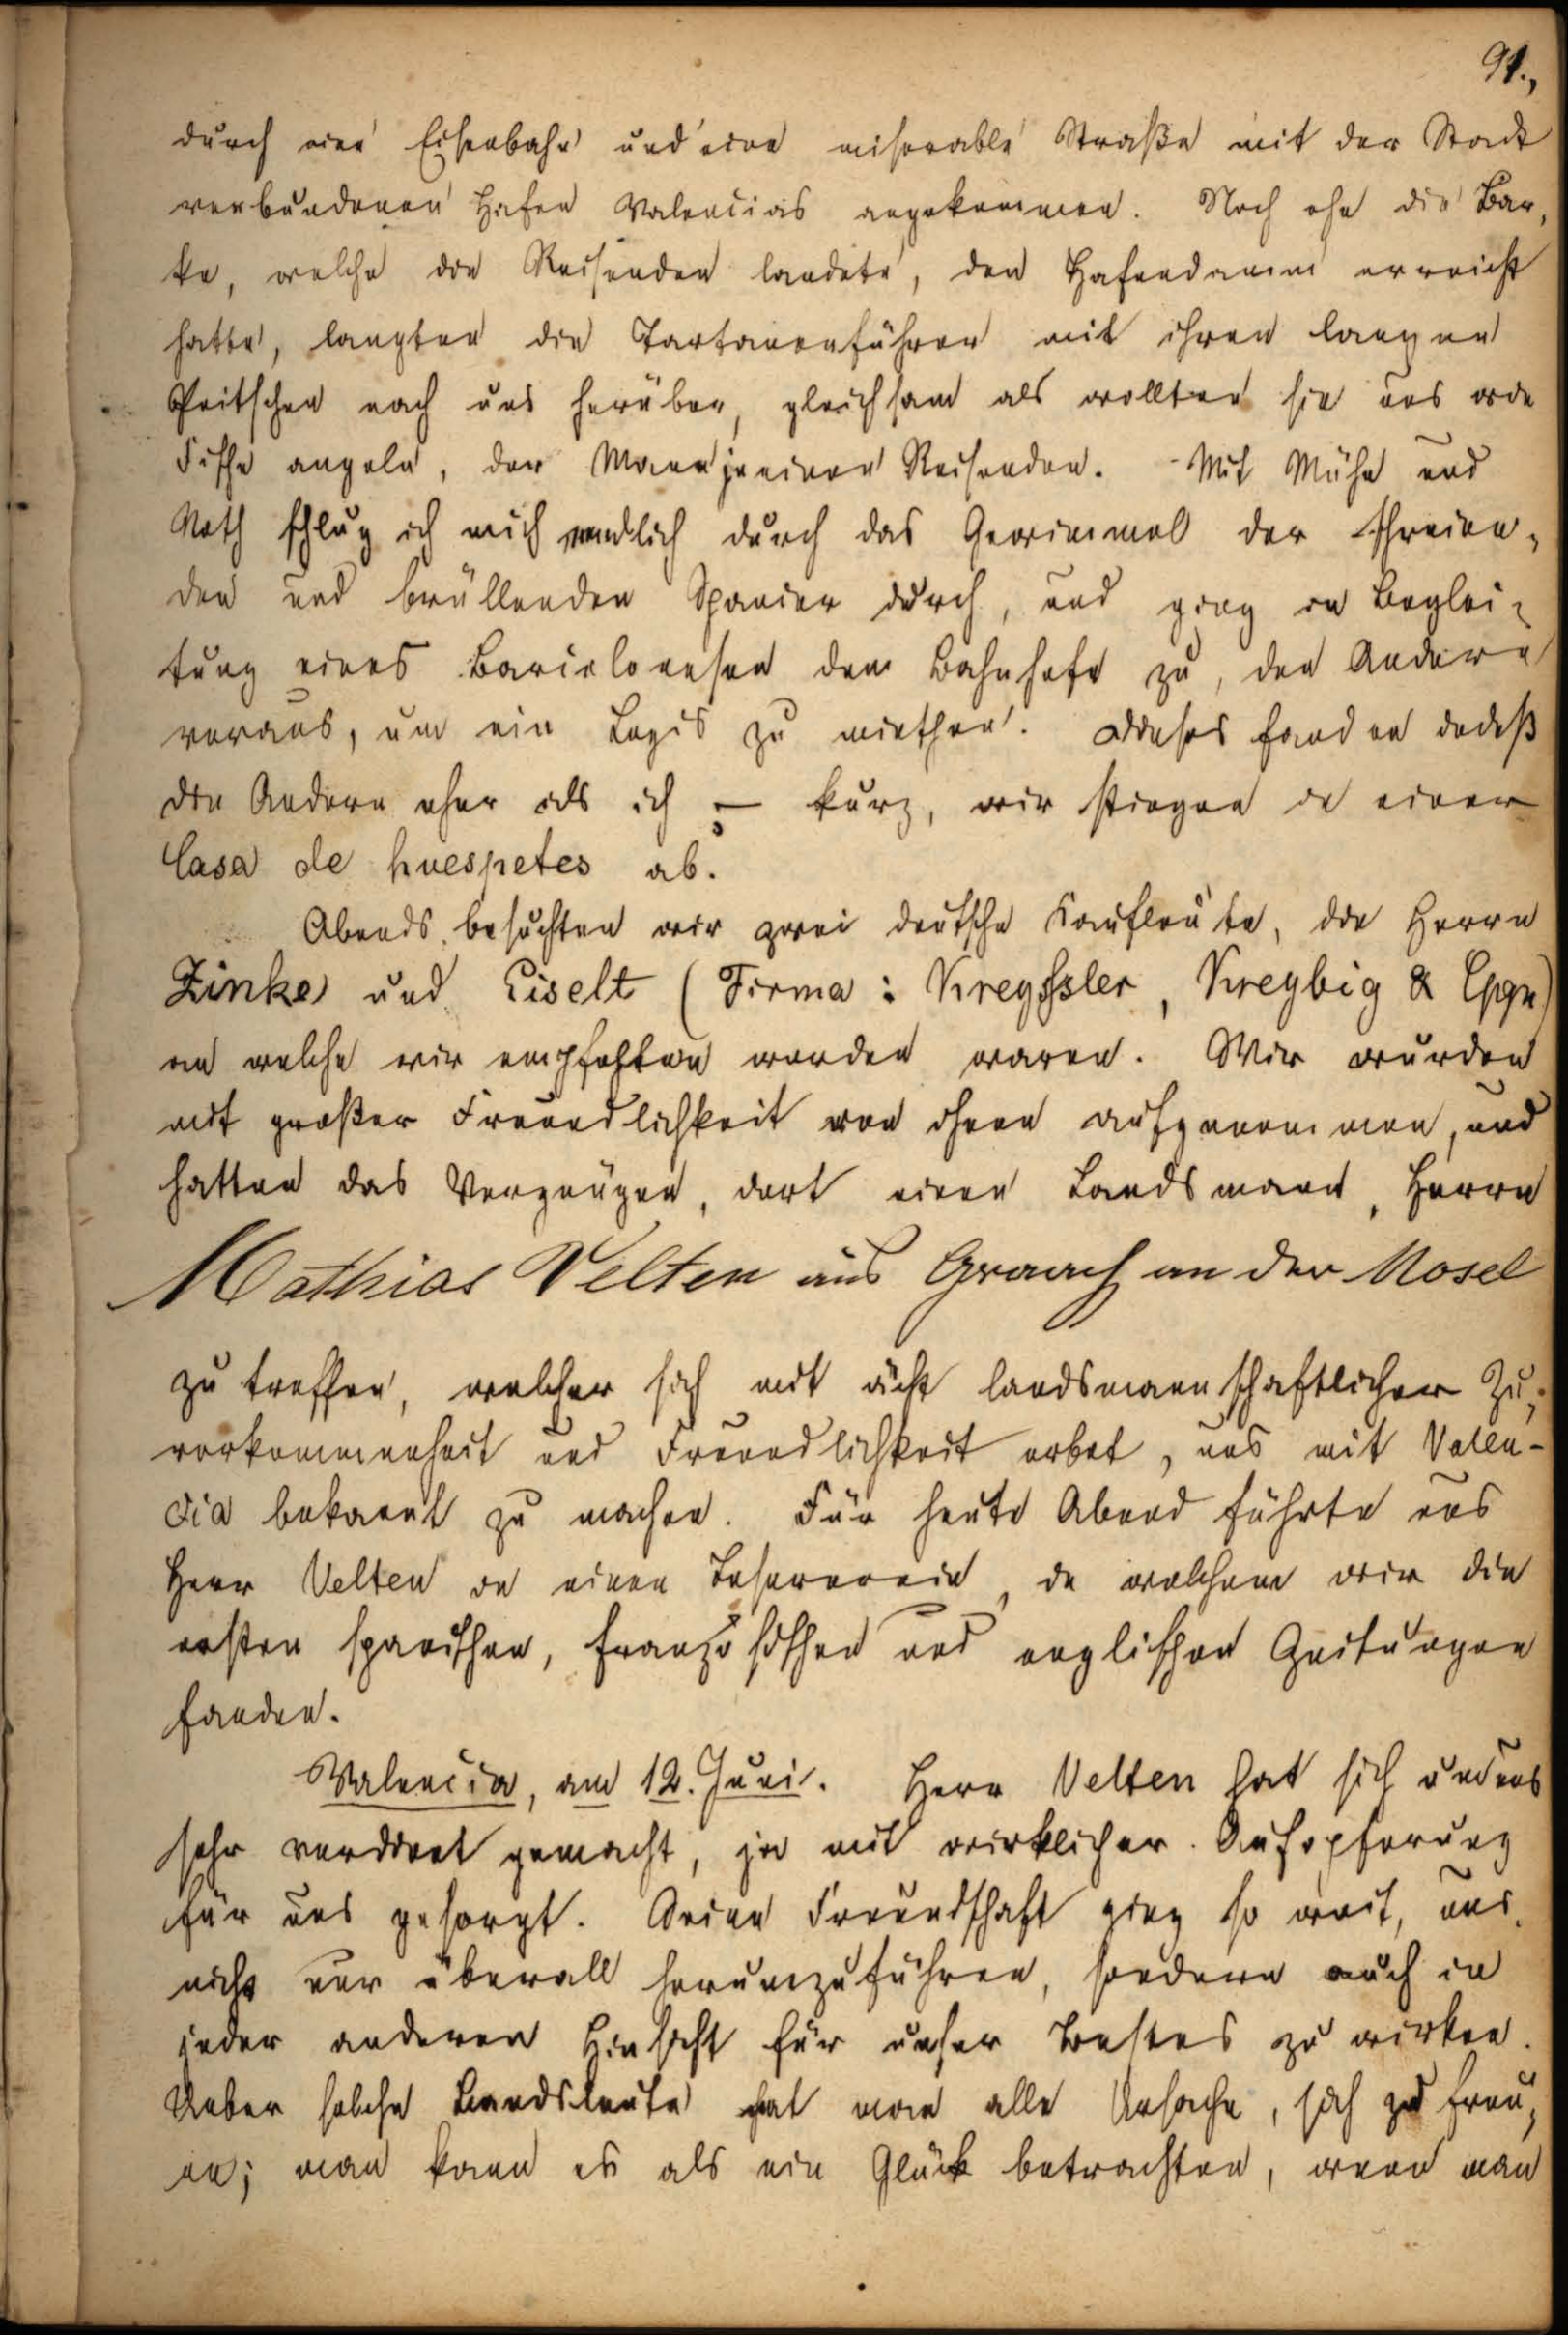 91.,
durch eine Eisenbahn und eine miserable Straße mit der Stadt
verbundenen Hafen Valencias angekommen. Noch ehe die Bar,
ke, welche die Reisenden landete, den Hafendamm erreicht
hatte, langten die Tartanenführer mit ihren langen
Peitschen nach uns herüber, gleichsam als wollten sie uns wie
Fische angeln, der Mann je einen Reisenden. - Mit Mühe und
Noth schlug ich mich endlich durch das Gewimmel der schreien,
den und brüllenden Spanier durch, und ging in Beglei,
tung eines Barcelonesen dem Bahnhofe zu, den Andern
voraus, um ein Logis zu miethen. Dieses fanden indeß
die Andern eher als ich – kurz, wir stiegen in einer
Casa de huespetes ab.
Abends besuchten wir zwei deutsche Kaufleute, die Herrn
Zinke und Eiselt (Firma: Kreyssler, Kreybig & Cpgn)
an welche wir empfohlen worden waren. Wir wurden
mit großer Freundlichkeit von ihnen aufgenommen, und
hatten das Vergnügen, dort einen Landsmann, Herrn
Mathias Velten aus Graach an der Mosel
zu treffen, welcher sich mit ächt landsmannschaftlicher Zu,
vorkommenheit und Freundlichkeit erbot, uns mit Valen-
cia bekannt zu machen. Für heute Abend führte uns
Herr Velten in einen Leseverein, in welchem wir die
ersten spanischen, französischen und englischen Zeitungen
fanden.
Valencia, am 12. Juni. Herr Velten hat sich um uns
sehr verdient gemacht, ja mit wirklicher Aufopferung
für uns gesorgt. Seine Freundschaft ging so weit, uns
nicht nur überall herumzuführen, sondern auch in
jeder anderen Hinsicht für unser Bestes zu wirken.
Ueber solche Landsleute hat man alle Ursache, sich zu freu,
en; man kann es als ein Glück betrachten, wenn man